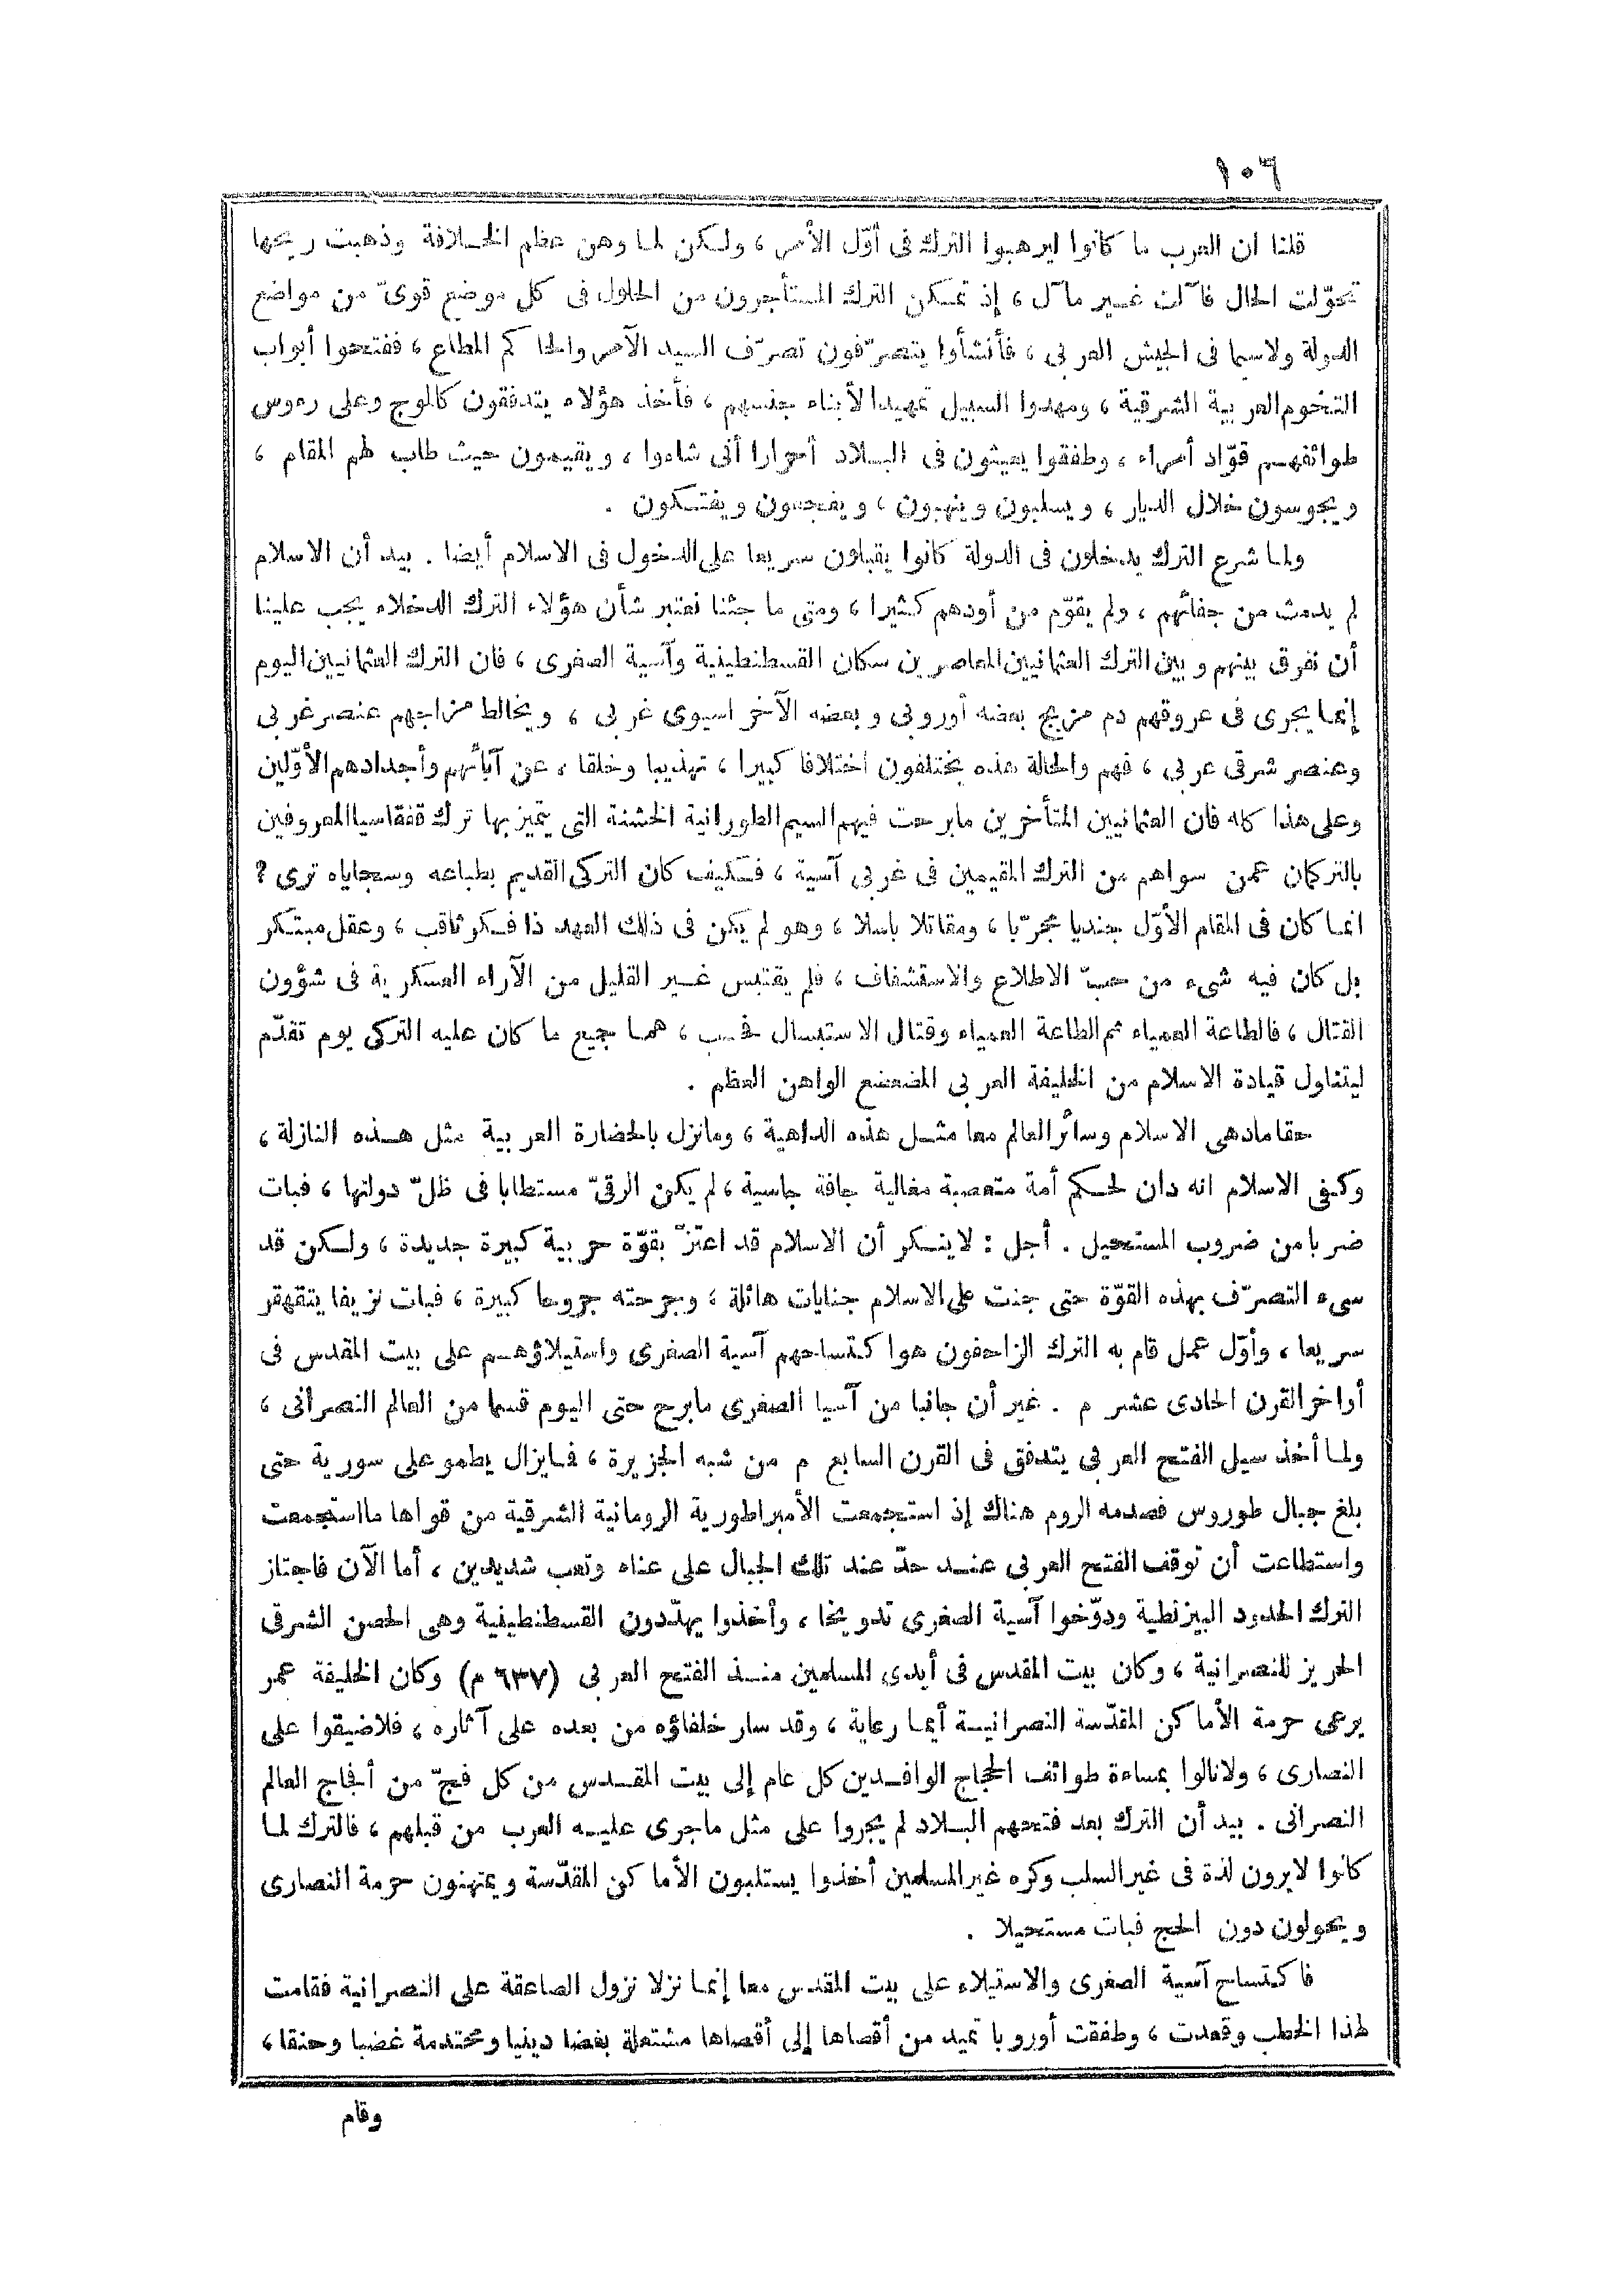 ١٠٦
قلنا ان العرب ما كانوا ليرهبوا الترك فى أوّل الأمر ، ولكن لما وهن عظم الخلافة وذهبت ريحها
تحوّلت الحال فآلت غير مآل ، إذ تمكن الترك المستأجرون من الحلول فى كل موضع قوىّ من مواضع
الدولة ولاسيما فى الجيش العربى ، فأنشأوا يتصرّفون تصرّف السيد الآمر والحاكم المطاع ، ففتحوا أبواب
التخوم العربية الشرقية ، ومهدوا السبيل تمهيدا لأبناء جنسهم ، فأخذ هؤلاء يتدفقون كالموج وعلى رءوس
طوائفهم قوّاد أمراء ، وطفقوا يعيثون فى البلاد أحرارا أنى شاءوا ، ويقيمون حيث طاب لهم المقام ،
ويجوسون خلال الديار ، ويسلبون وينهبون ، ويفجعون ويفتكون .
ولما شرع الترك يدخلون فى الدولة كانوا يقبلون سريعا على الدخول فى الاسلام أيضا . بيد أن الاسلام
لم يدمث من جفائهم ، ولم يقوّم من أودهم كثيرا ، ومتى ما جئنا نعتبر شأن هؤلاء الترك الدخلاء يجب علينا
أن نفرق بينهم وبين الترك العثمانيين المعاصرين سكان القسطنطينية وآسية الصغرى ، فان الترك العثمانيين اليوم
إنما يجرى فى عروقهم دم مزيج بعضه أوروبى وبعضه الآخر اسيوى غربى ، ويخالط مزاجهم عنصر غربى
وعنصر شرقى عربى ، فهم والحالة هذه يختلفون اختلافا كبيرا ، تهذيبا وخلقا ، عن آبائهم وأجدادهم الأوّلين
وعلى هذا كله فان العثمانيين المتأخرين مابرحت فيهم السيم الطورانية الخشنة التى يتميز بها ترك قفقاسيا المعروفين
بالتركمان عمن سواهم من الترك المقيمين فى غربى آسية ، فكيف كان التركى القديم بطباعه وسجاياه ترى ؟
انما كان فى المقام الأوّل جنديا مجرّبا ، ومقاتلا باسلا ، وهو لم يكن فى ذلك العهد ذا فكر ثاقب ، وعقل مبتكر
بل كان فيه شىء من حبّ الاطلاع والاستشفاف ، فلم يقتبس غير القليل من الآراء العسكرية فى شؤون
القتال ، فالطاعة العمياء ثم الطاعة العمياء وقتال الاستبسال فحسب ، هما جميع ما كان عليه التركى يوم تقدّم
ليتناول قيادة الاسلام من الخليفة العربى المضعضع الواهن العظم .
حقا مادهى الاسلام وسائر العالم معا مثل هذه الداهية ، ومانزل بالحضارة العربية مثل هذه النازلة ،
وكفى الاسلام انه دان لحكم أمة متعصبة مغالية جافة جاسية ، لم يكن الرقىّ مستطابا فى ظلّ دولتها ، فبات
ضربا من ضروب المستحيل . أجل : لا ينكر أن الاسلام قد اعتزّ بقوّة حربية كبيرة جديدة ، ولكن قد
سىء التصرّف بهذه القوّة حتى جنت على الاسلام جنايات هائلة ، وجرحته جروحا كبيرة ، فبات نزيفا يتقهقر
سريعا ، وأوّل عمل قام به الترك الزاحفون هوا كتساحهم آسية الصغرى واستيلاؤهم على بيت المقدس فى
أواخر القرن الحادى عشر م . غير أن جانبا من آسيا الصغرى مابرح حتى اليوم قسما من العالم النصرانى ،
ولما أخذ سيل الفتح العربى يتدفق فى القرن السابع م من شبه الجزيرة ، فمايزال يطمو على سورية حتى
بلغ جبال طوروس فصدمه الروم هناك إذ استجمعت الأمبراطورية الرومانية الشرقية من قواها مااستجمعت
واستطاعت أن توقف الفتح العربى عند حدّ عند تلك الجبال على عناء وتعب شديدين ، أما الآن فاجتاز
الترك الحدود البيزنطية ودوّخوا آسية الصغرى تدويخا ، وأخذوا يهدّدون القسطنطينية وهى الحصن الشرقى
الحريز للنصرانية ، وكان بيت المقدس فى أيدى المسلمين منذ الفتح العربى (٦٣٧ م) وكان الخليفة عمر
يرعى حرمة الأماكن المقدّسة النصرانية أيما رعاية ، وقد سار خلفاؤه من بعده على آثاره ، فلاضيقوا على
النصارى ، ولانالوا بمساءة طوائف الحجاج الوافدين كل عام إلى بيت المقدس من كل فجّ من أفجاج العالم
النصرانى . بيد أن الترك بعد فتحهم البلاد لم يجروا على مثل ماجرى عليه العرب من قبلهم ، فالترك لما
كانوا لايرون لذة فى غير السلب وكره غير المسلمين أخذوا يستلبون الأماكن المقدّسة ويمتهنون حرمة النصارى
ويحولون دون الحج فبات مستحيلا .
فاكتساح آسية الصغرى والاستيلاء على بيت المقدس معا إنما نزلا نزول الصاعقة على النصرانية فقامت
لهذا الخطب وقعدت ، وطفقت أوروبا تميد من أقصاها إلى أقصاها مشتعلة بغضا دينيا ومحتدمة غضبا وحنقا ،
وقام